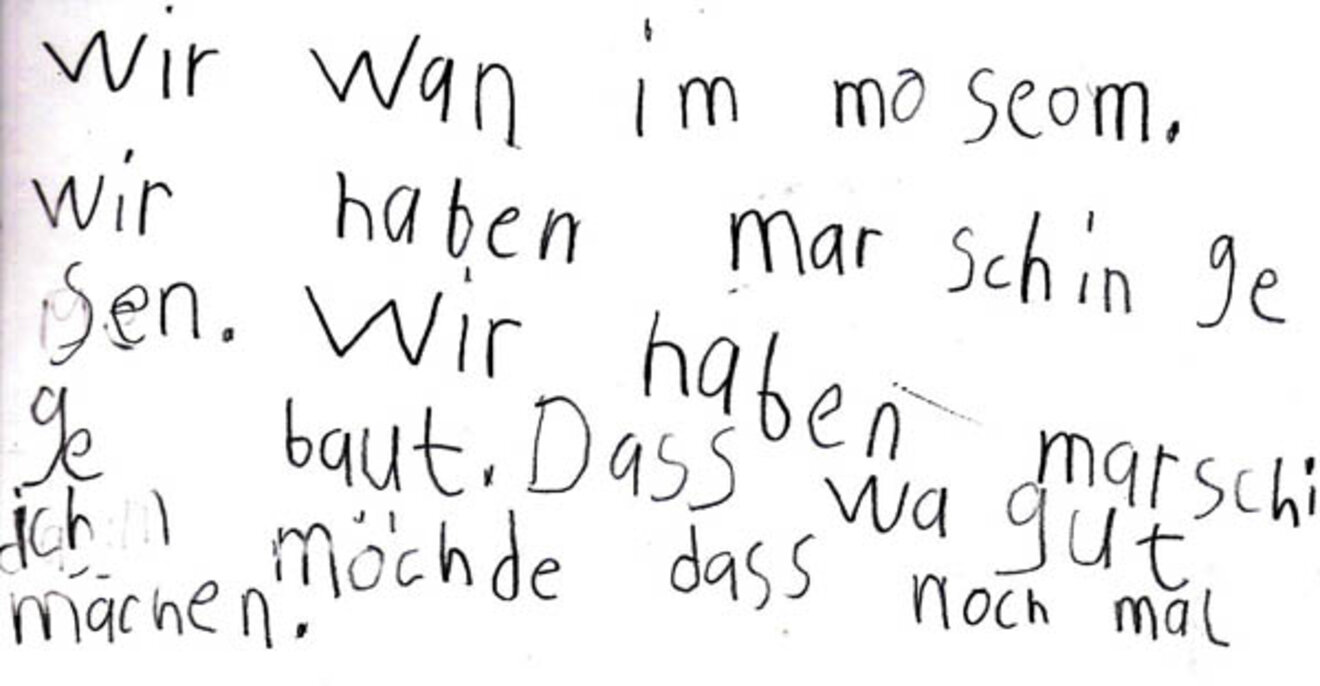 Wir wan im mo seom.
wir haben mar schin ge
sen. Wir haben marschi
ge baut. Dass wa gut
ich möchde dass noch mal
machen.